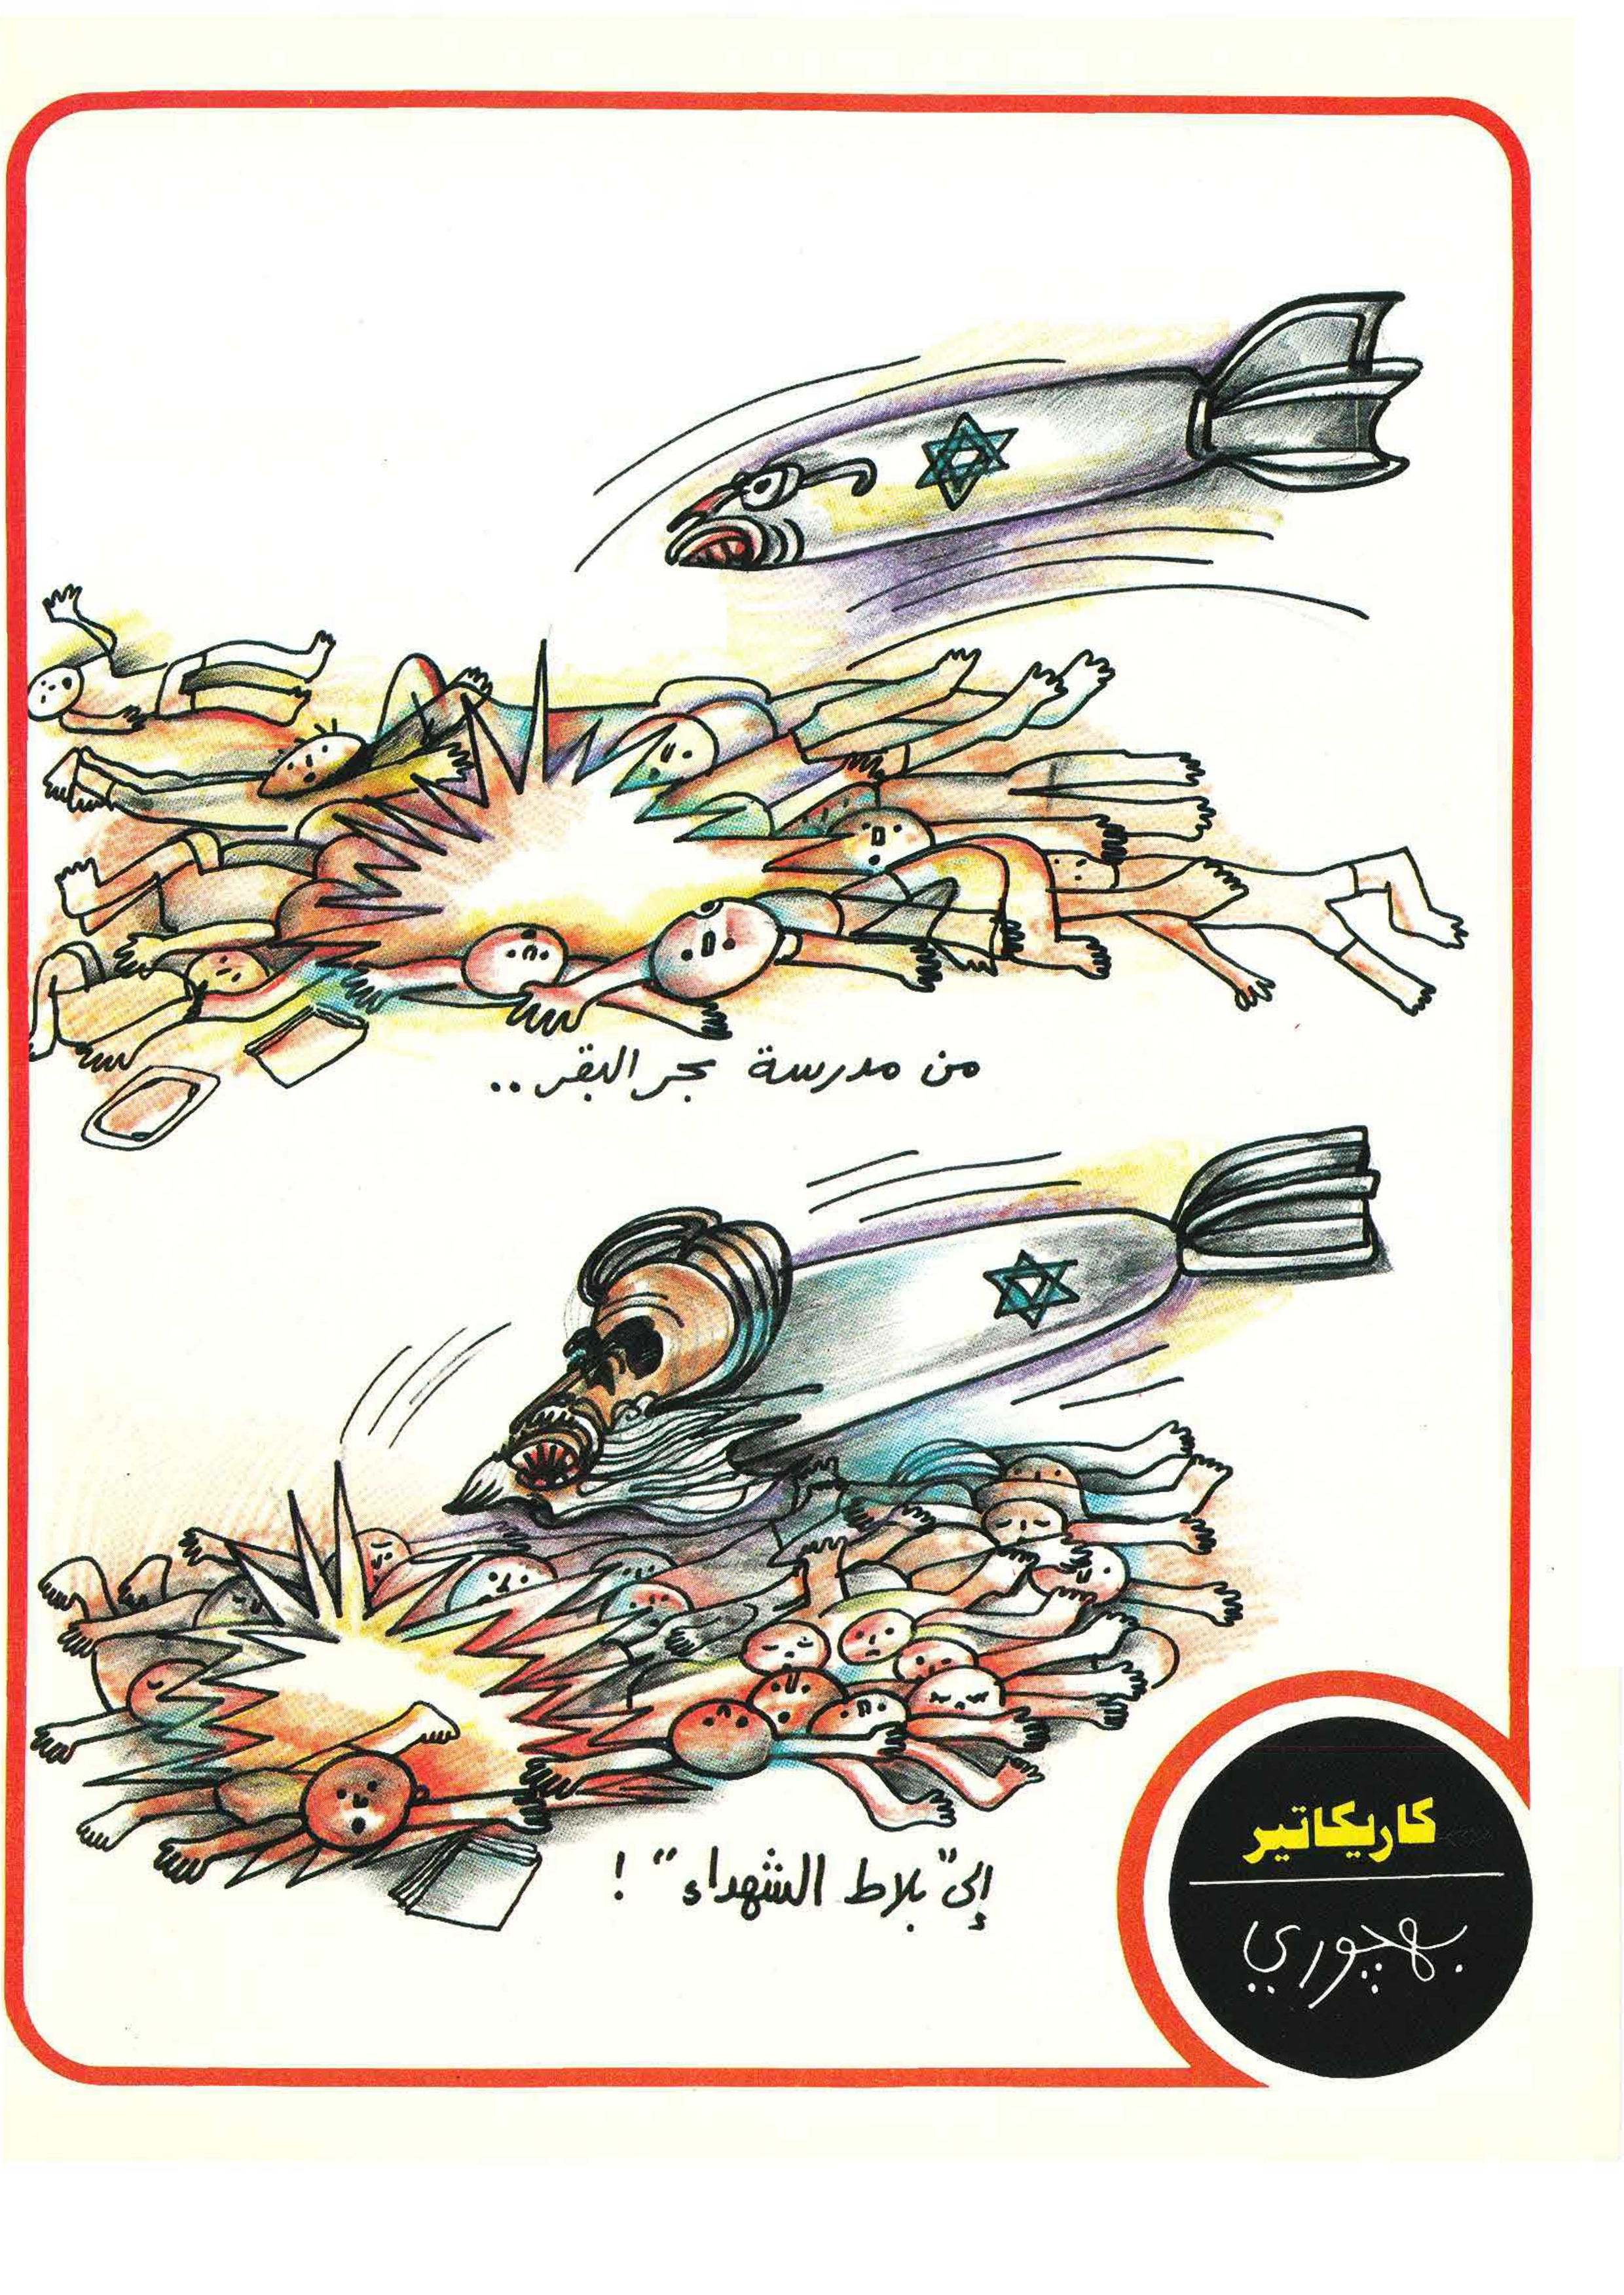 من مدرسة بحر البقر..
إلى "بلاط الشهداء" !
كاريكاتير
بهچوري